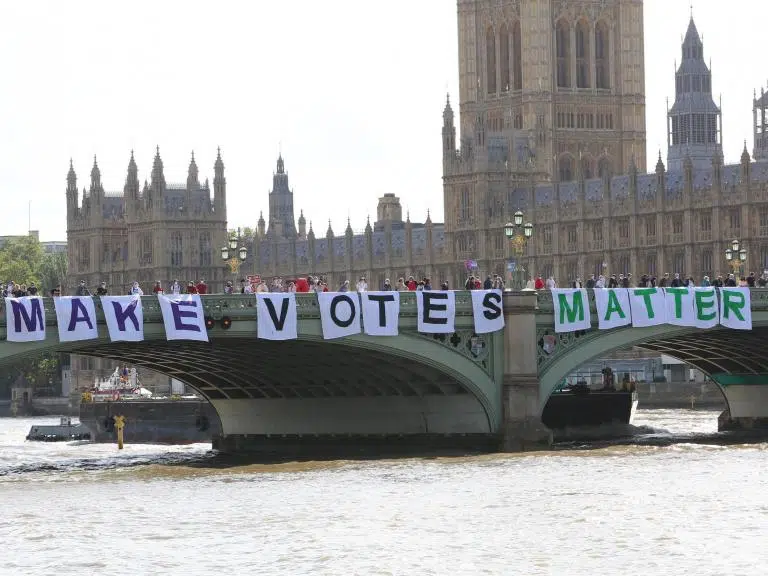 MAKE VOTES MATTER